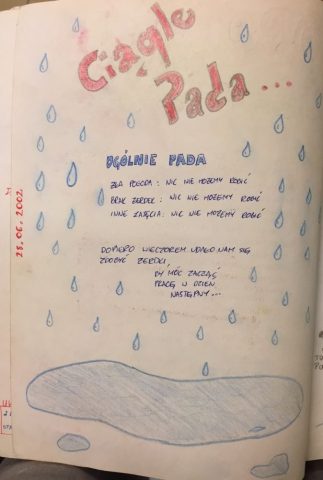 Ciągle
Pada...
28.06.2002
OGÓLNIE PADA
ZŁA POGODA : NIC NIE MOŻEMY ROBIĆ
BRAK ŻERDEC : NIC NIE MOŻEMY ROBIĆ
INNE ZAJĘCIA : NIC NIE MOŻEMY ROBIĆ
DOPIERO WIECZOREM UDAŁO NAM SIĘ
ZDOBYĆ ŻERDZI
BY MÓC ZACZĄĆ
PRACĘ W DZIEŃ
NASTĘPNY...